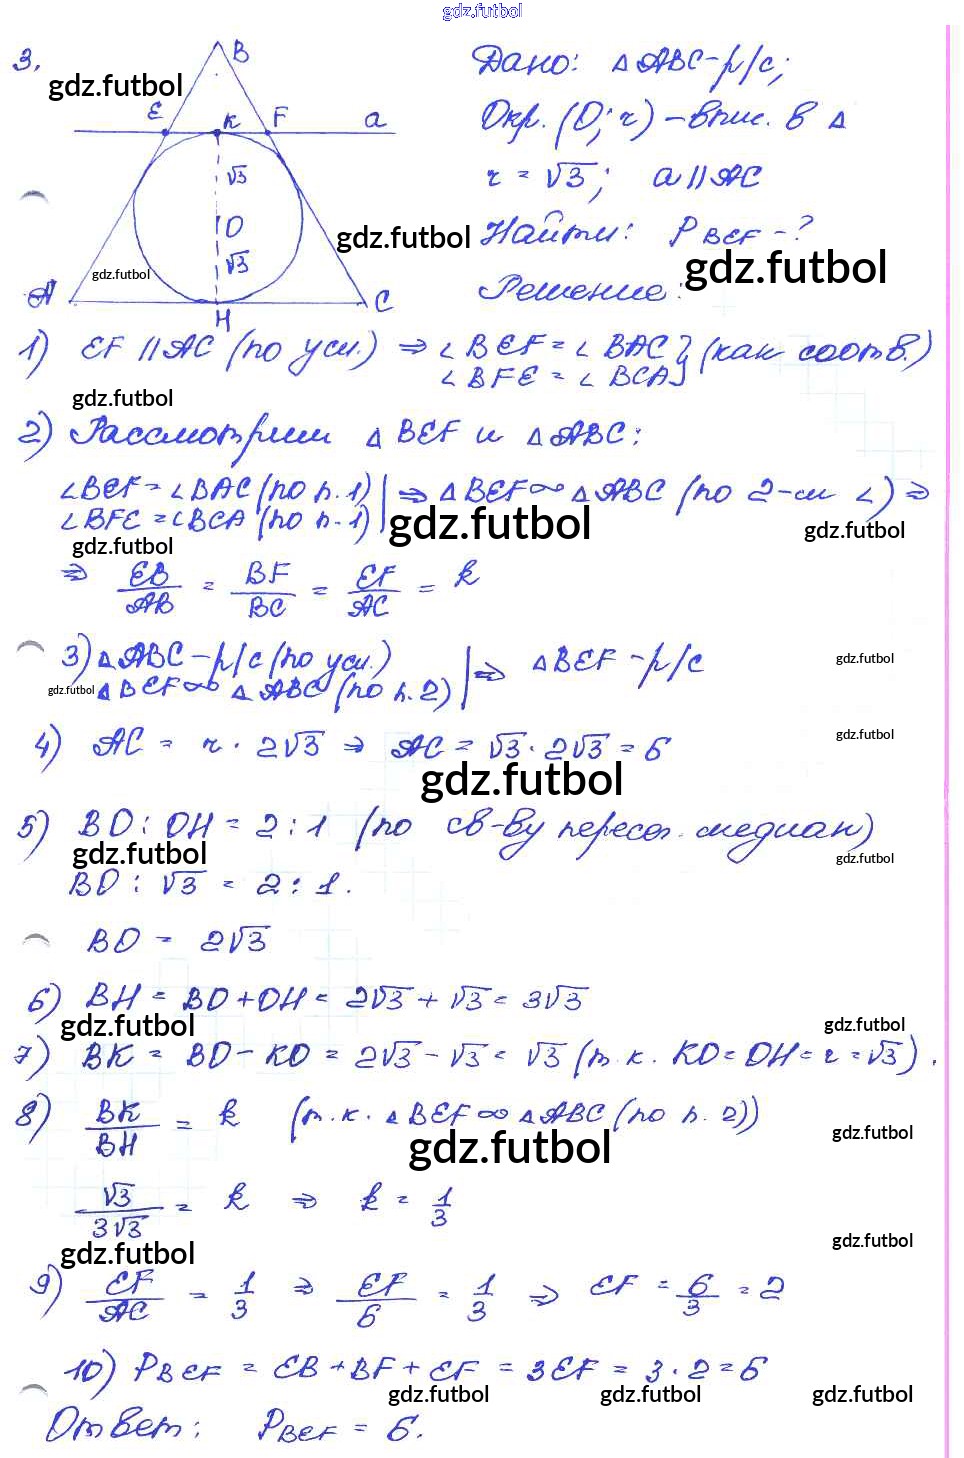 gdz.futbol
3.
B
Дано: △ABC-р/с;
gdz.futbol
E K F a
Окр. (O; r) - впис. в △
√3
r = √3; a || AC
O
gdz.futbol
Найти: P BEF - ?
√3
gdz.futbol
gdz.futbol
A C
Решение:
H
1) EF || AC (по усл.) ⇒ ∠BEF = ∠BAC } (как соотв.)
∠BFE = ∠BCA
gdz.futbol
2) Рассмотрим △BEF и △ABC:
∠BEF = ∠BAC (по п.1) | ⇒ △BEF ∞ △ABC (по 2-ум ∠) ⇒
∠BFE = ∠BCA (по п.1)
gdz.futbol
gdz.futbol
gdz.futbol
⇒ EB/AB = BF/BC = EF/AC = k
3) △ABC - р/с (по усл.) | ⇒ △BEF - р/с
gdz.futbol
gdz.futbol △BEF ∞ △ABC (по п.2)
4) AC = r · 2√3 ⇒ AC = √3 · 2√3 = 6
gdz.futbol
gdz.futbol
5) BO : OH = 2 : 1 (по св-ву пересеч. медиан)
gdz.futbol
gdz.futbol
BO : √3 = 2 : 1.
BO = 2√3
6) BH = BO + OH = 2√3 + √3 = 3√3
gdz.futbol
gdz.futbol
7) BK = BO - KO = 2√3 - √3 = √3 (т.к. KO = OH = r = √3).
8) BK/BH = k (т.к. △BEF ∞ △ABC (по п. 2))
gdz.futbol
gdz.futbol
√3/3√3 = k ⇒ k = 1/3
gdz.futbol
gdz.futbol
9) EF/AC = 1/3 ⇒ EF/6 = 1/3 ⇒ EF = 6/3 = 2
10) P BEF = EB + BF + EF = 3EF = 3 · 2 = 6
gdz.futbol gdz.futbol gdz.futbol
Ответ: P BEF = 6.